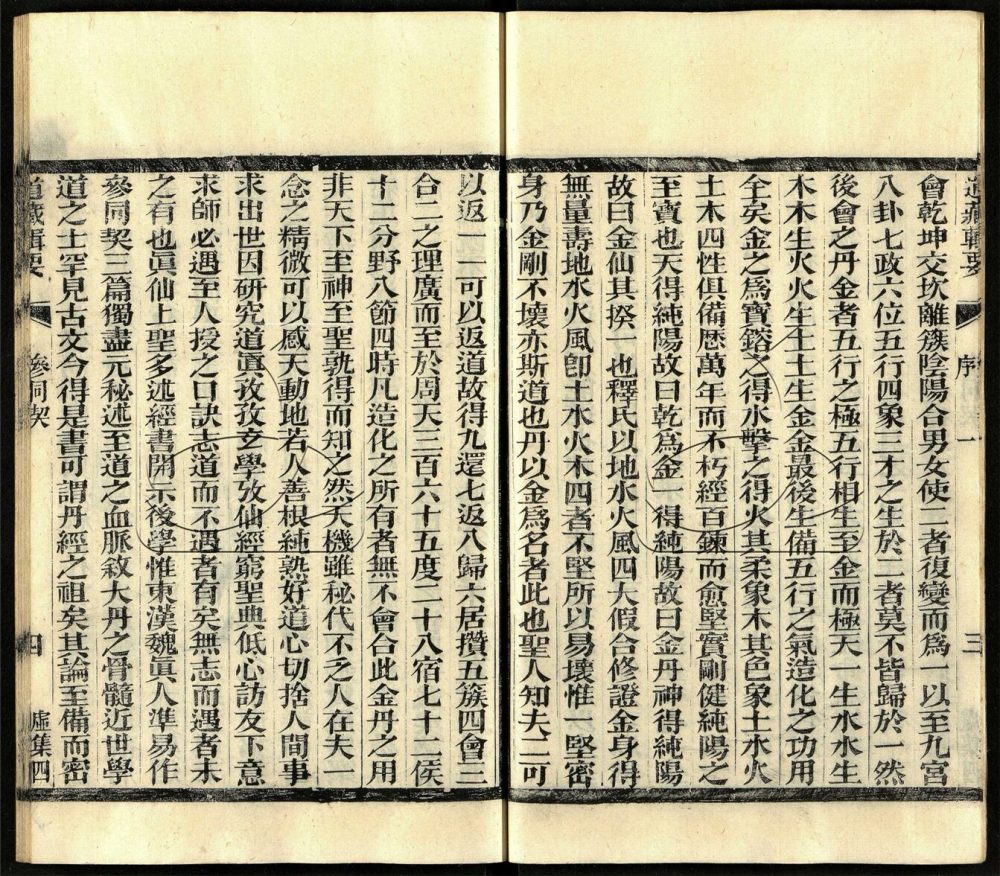 道藏輯要
序
一
三
會乾坤交坎離簇陰陽合男女使二者復變而爲一以至九宮
八卦七政六位五行四象三才之生於二者莫不皆歸於一然
後會之丹金者五行之極五行相生至金而極天一生水水生
木木生火火生土土生金金最後生備五行之氣造化之功用
全矣金之爲寶鎔之得水擊之得火其柔象木其色象土水火
土木四性俱備歷萬年而不朽經百鍊而愈堅實剛健純陽之
至寶也天得純陽故曰乾爲金一得純陽故曰金丹神得純陽
故曰金仙其揆一也釋氏以地水火風四大假合修證金身得
無量壽地水火風卽土水火木四者不堅所以易壞惟一堅密
身乃金剛不壞亦斯道也丹以金爲名者此也聖人知夫二可
以返一一可以返道故得九還七返八歸六居攢五簇四會三
合二之理廣而至於周天三百六十五度二十八宿七十二侯
十二分野八節四時凡造化之所有者無不會合此金丹之用
非天下至神至聖孰得而知之然天機雖秘代不之人在夫一
念之精微可以感天動地若人善根純熟好道心切捨人間事
求出世因研究道眞孜孜玄學攷仙經窮聖典低心訪友下意
求師必遇至人授之口訣志道而不遇者有矣無志而遇者未
之有也眞仙上聖多述經書開示後學惟東漢魏眞人準易作
參同契三篇獨盡元秘述至道之血脈敘大丹之骨髓近世學
道之士罕見古文今得是書可謂丹經之祖矣其論至備而密
道藏輯要
參同契
四
虛集四